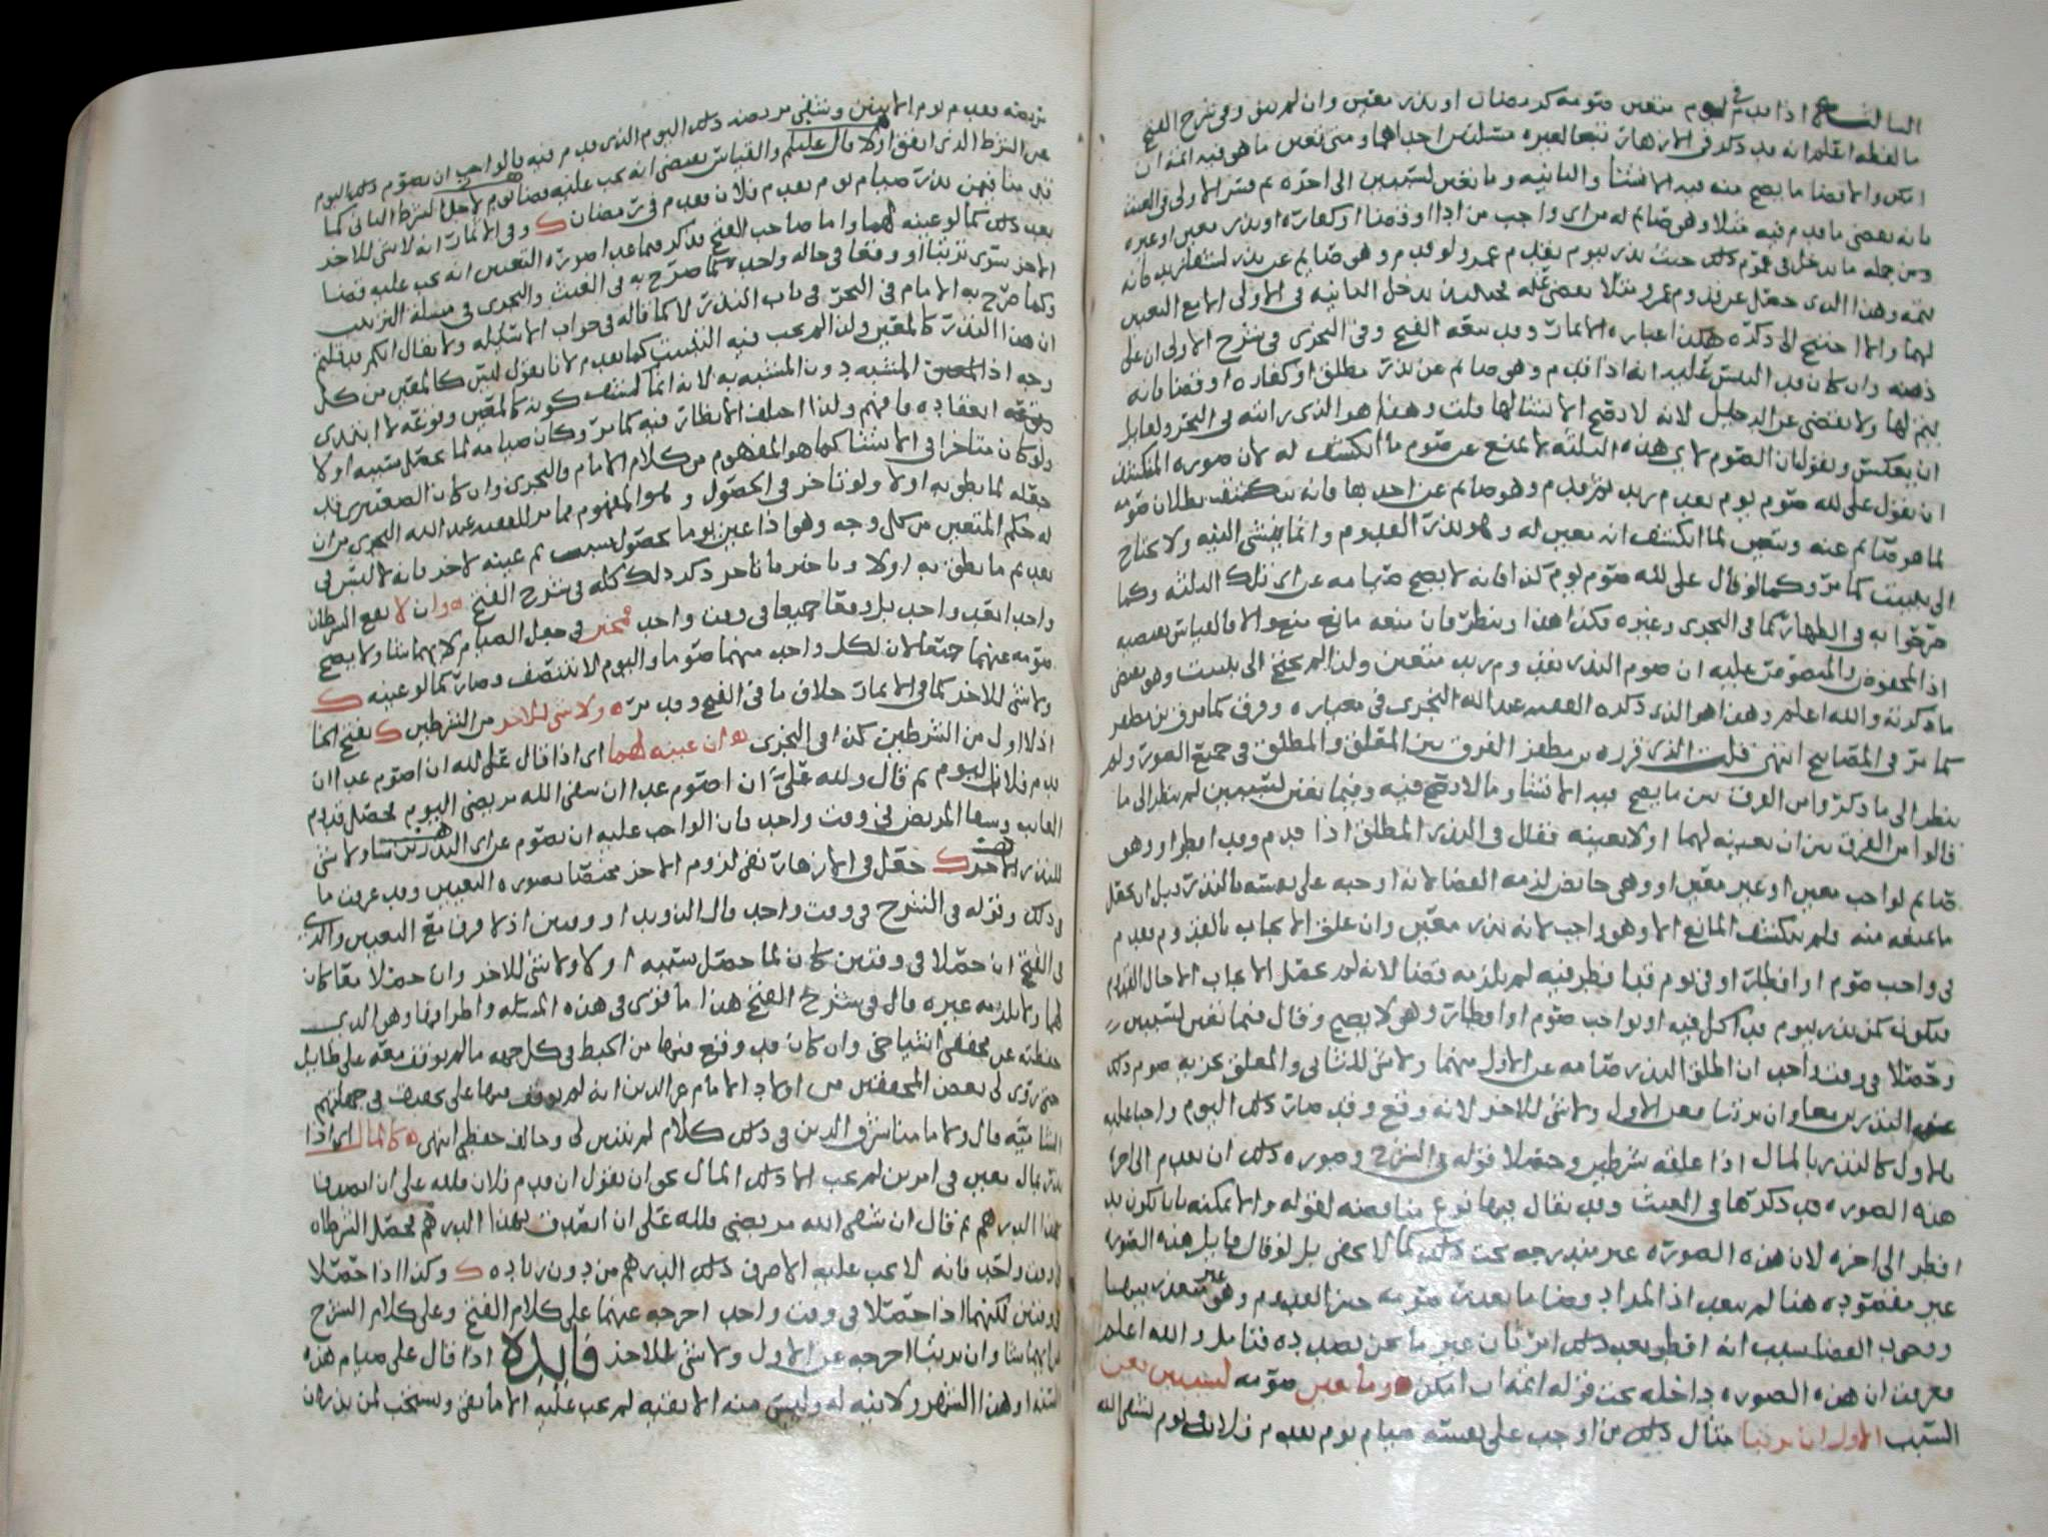 اذا قدم في يوم متعين صومه كرمضان او نذر معين وان لم ينو وفي شرح الفتح
ما لفظه اعلم انه قد ذكر في الازهار تبعا لغيره مسئلتين احداهما ومتى تعين ما هو فيه اتمه ان
امكن والا قضا ما يصح منه فيه الانشا والثانيه وما تعين لسببين الى اخره ثم فسر الاولى في الغيث
بانه يعني ما قدم فيه مثلا وهو صائم له من اي واجب من ادا او قضا او كفاره او نذر معين او غيره
ومن جمله ما يدخل في عموم ذلك حيث نذر بيوم يقدم عمرو لو قدم وهو صايم عن نذر
يتمه وهذا الذي حصل عن قدوم عمرو مثلا
لهما والا احتيج الى ذكره هكذا عباره الاثمار وقد تبعه الفتح وفي النجري في شرح الاولى ان على
ذهنه وان كان قد التبس عليه انه اذا قدم وهو صايم عن نذر مطلق او كفاره او قضا فانه
يتم لها ولا يقضي عن الدخيل لانه لا يصح الانشا لها قلت وهذا هو الذي رايته في البحر ولقايل
ان يعكس ويقول ان الصوم لاي هذه الثلثه لا يمنع عن صوم ما انكشف له لان صوره المنكشف
ان يقول على لله صوم يوم يقدم زيد ثم قدم وهو صايم عن احدها فانه ينكشف بطلان صومه
لما هو صايم عنه ويتعين لما انكشف انه معين له وهو نذر القدوم وانما ينشي النيه ولا يحتاج
الى تبييت كما مر وكما لو قال على لله صوم يوم كذا فانه لا يصح صيامه عن اي تلك الثلثه وكما
صرحوا به في الظهار كما في النجري وغيره فكذا هذا وينظر فان منعه مانع منع والا فالقياس يقتضيه
اذ المفروض والمنصوص عليه ان صوم النذر بقدوم زيد متعين ولذا لم يحتج الى تبييت وهو بعض
ما ذكرته والله اعلم وهذا هو الذي ذكره الفقيه عبدالله النجري في معياره وفرق كما فرق بن مظفر
كما مر في المصابيح انتهى قلت الذي قرره بن مظفر الفرق بين المعلق والمطلق في جميع الصور ولم
ينظر الى ما ذكر من الفرق بين ما يصح فيه الانشا وما لا يصح فيه وفيما تعين لسببين لم ينظر الى ما
قالوا من الفرق بين ان يعينه لهما او لا يعينه فقال في النذر المطلق اذا قدم وقد افطر او وهو
صايم لواجب معين او غير معين او وهي حايض لزمه القضا لانه اوجبه على نفسه بالنذر قبل ان يحصل
ما يمنعه منه ولم ينكشف المانع الا وهو واجب لانه نذر معين وان علق الايجاب بالقدوم فقدم
في واجب صوم او افطار او في يوم قد افطر فيه لم يلزمه قضا لانه لم يحصل الايجاب الا حال القدوم
فيكون كمن نذر بيوم قد اكل فيه او لواجب صوم او افطار وهي لا يصح وقال فيما تعين لسببين
وحصلا في وقت واحد ان اطلق النذر صامه عن الاول منهما ولا شي للثاني والمعلق يجزيه صوم ذلك
عن النذرين معا وان ترتبا فعن الاول ولا شي للاخر لانه وقع وقد صار ذلك اليوم واجبا عليه
بالاول كالنذر بالمال اذا علقه بشرطين وحصلا قوله في الشرح وصوره ذلك ان يقدم الى اخر
هذه الصوره قد ذكرها في الغيث وقد يقال فيها نوع مناقضه لقوله والا يمكنه بان يكون قد
افطر الى اخره لان هذه الصوره غير مندرجه تحت ذلك كما لا يخفى بل لو قال قايل هذه الصوره
غير مقصوده هنا لم يبعد اذ المراد وصام ما تعذر صومه حين القدوم وهو غير متعذر فيها
ووجوب القضا بسبب انه افطر بعد ذلك امر ثان غير ما نحن بصدده فتامل والله اعلم
عرفت ان هذه الصوره داخله تحت قوله اتمه ان امكن وما تعين صومه لسببين فعن
السبب الاول ان ترتبا مثال ذلك من اوجب على نفسه صيام يوم يقدم فلان ويوم يشفي الله
مريضه فقدم يوم الاثنين وشفي مريضه ذلك اليوم الذي قدم فيه فالواجب ان يصوم ذلك اليوم
عن الشرط الذي اتفق اولا قال عليلم والقياس يقتضي انه يجب عليه قضا يوم لاجل الشرط الثاني كما
فيمن نذر صيام يوم يقدم فلان فقدم في رمضان وفي الاثمار انه لا شي للاخر
بعد ذلك كما لو عينه لهما واما صاحب الفتح فذكر فيما عدا صوره التعيين انه يجب عليه قضا
الاخر سوى ترتبا او وقعا في حاله واحده كما صرح به في الغيث والنجري في مسئلة الترتيب
وكما صرح به الامام في البحر في باب النذر لا كما قاله في جواب الاسئله ولا يقال انكم قد قلتم
ان هذا النذر كالمعين ولذا لم يجب فيه التبييت كما تقدم لانا نقول ليس كالمعين من كل
وجه اذ المشبه دون المشبه به لانه انما انكشف كونه كالمعين وقوعه لا ابتدى
انعقاده فافهم ولذا اختلف الانظار فيه كما مر وكان صيامه لما حصل سببه اولا
ولو كان متاخرا في الانشا كما هو المفهوم من كلام الامام والنجري وان كان الصعيتري قد
جعله لما نطق به اولا ولو تاخر في الحصول وهو المفهوم مما مر للفقيه عبد الله النجري من ان
له حكم المتعين من كل وجه وهو اذا عين يوما بحصول سبب ثم عينه لاخر فانه لا يتبين في
تقديم ما نطق به اولا وتاخير ما تاخر ذكر ذلك كله في شرح الفتح وان لا يقع الشرطان
واحدا بعد واحد بل وقعا جميعا في وقت واحد فمخير في جعل الصيام لايهما شا ولا يصح
صومه عنهما جميعا لان لكل واحد منهما صوما واليوم لا يتنصف وصار كما لو عينه
ولا شي للاخر كما في الاثمار خلاف ما في الفتح وقد مر ولا شي للاخر من الشرطين
اذ لا اول من الشرطين كذا في النجري ان عينه لهما اي اذا قال على لله ان اصوم غدا ان
قدم فلان اليوم ثم قال ولله علي ان اصوم غدا ان شفى الله مريضي اليوم فحصل قدوم
الغايب وشفا المريض في وقت واحد فان الواجب عليه ان يصوم عن اي النذرين شا ولا شي
للنذر الاخر جعل في الازهار نفي لزوم الاخر مختصا بصوره التعيين وقد عرفت ما
في ذلك وقوله في الشرح في وقت واحد قال الذويد او وقتين اذ لا فرق مع التعيين والذي
في الفتح ان حصلا في وقتين كان لما حصل سببه اولا ولا شي للاخر وان حصلا معا كان
لهما ولا يلزمه غيره قال في شرح الفتح هذا ما قوي في هذه المسئله واطرافها وهو الذي
حفظته عن محققي اشياخي وان كان قد وقع فيها من الخبط في كل جهه ما لم يوقف معه على طايل
حتى روى لي بعض المحققين من اولاد الامام عز الدين انه لم يوقف فيها على تحقيق في جهاتهم
الشاميه قال وللامام شرف الدين في ذلك كلام لم يتبين لي وخالف حفظي انتهى كالمال اي اذا
نذر بمال معين في امرين لم يجب الا ذلك المال نحو ان يقول ان قدم فلان فلله علي ان اتصدق
بهذا الدرهم ثم قال ان شفى الله مريضي فلله علي ان اتصدق بهذا الدرهم فحصل الشرطان
في وقت واحد فانه لا يجب عليه الا صرف ذلك الدرهم من دون زياده وكذا اذا حصلا
في وقتين لكنهما اذا حصلا في وقت واحد اخرجه عنهما على كلام الفتح وعلى كلام الشرح
عن ايهما شا وان ترتبا اخرجه عن الاول ولا شي للاخر فايده اذا قال علي صيام هذه
السنه او هذا الشهر ولا نيه له وليس منه الا بقيه لم يجب عليه الا ما بقي ويستحب لمن نذر ان